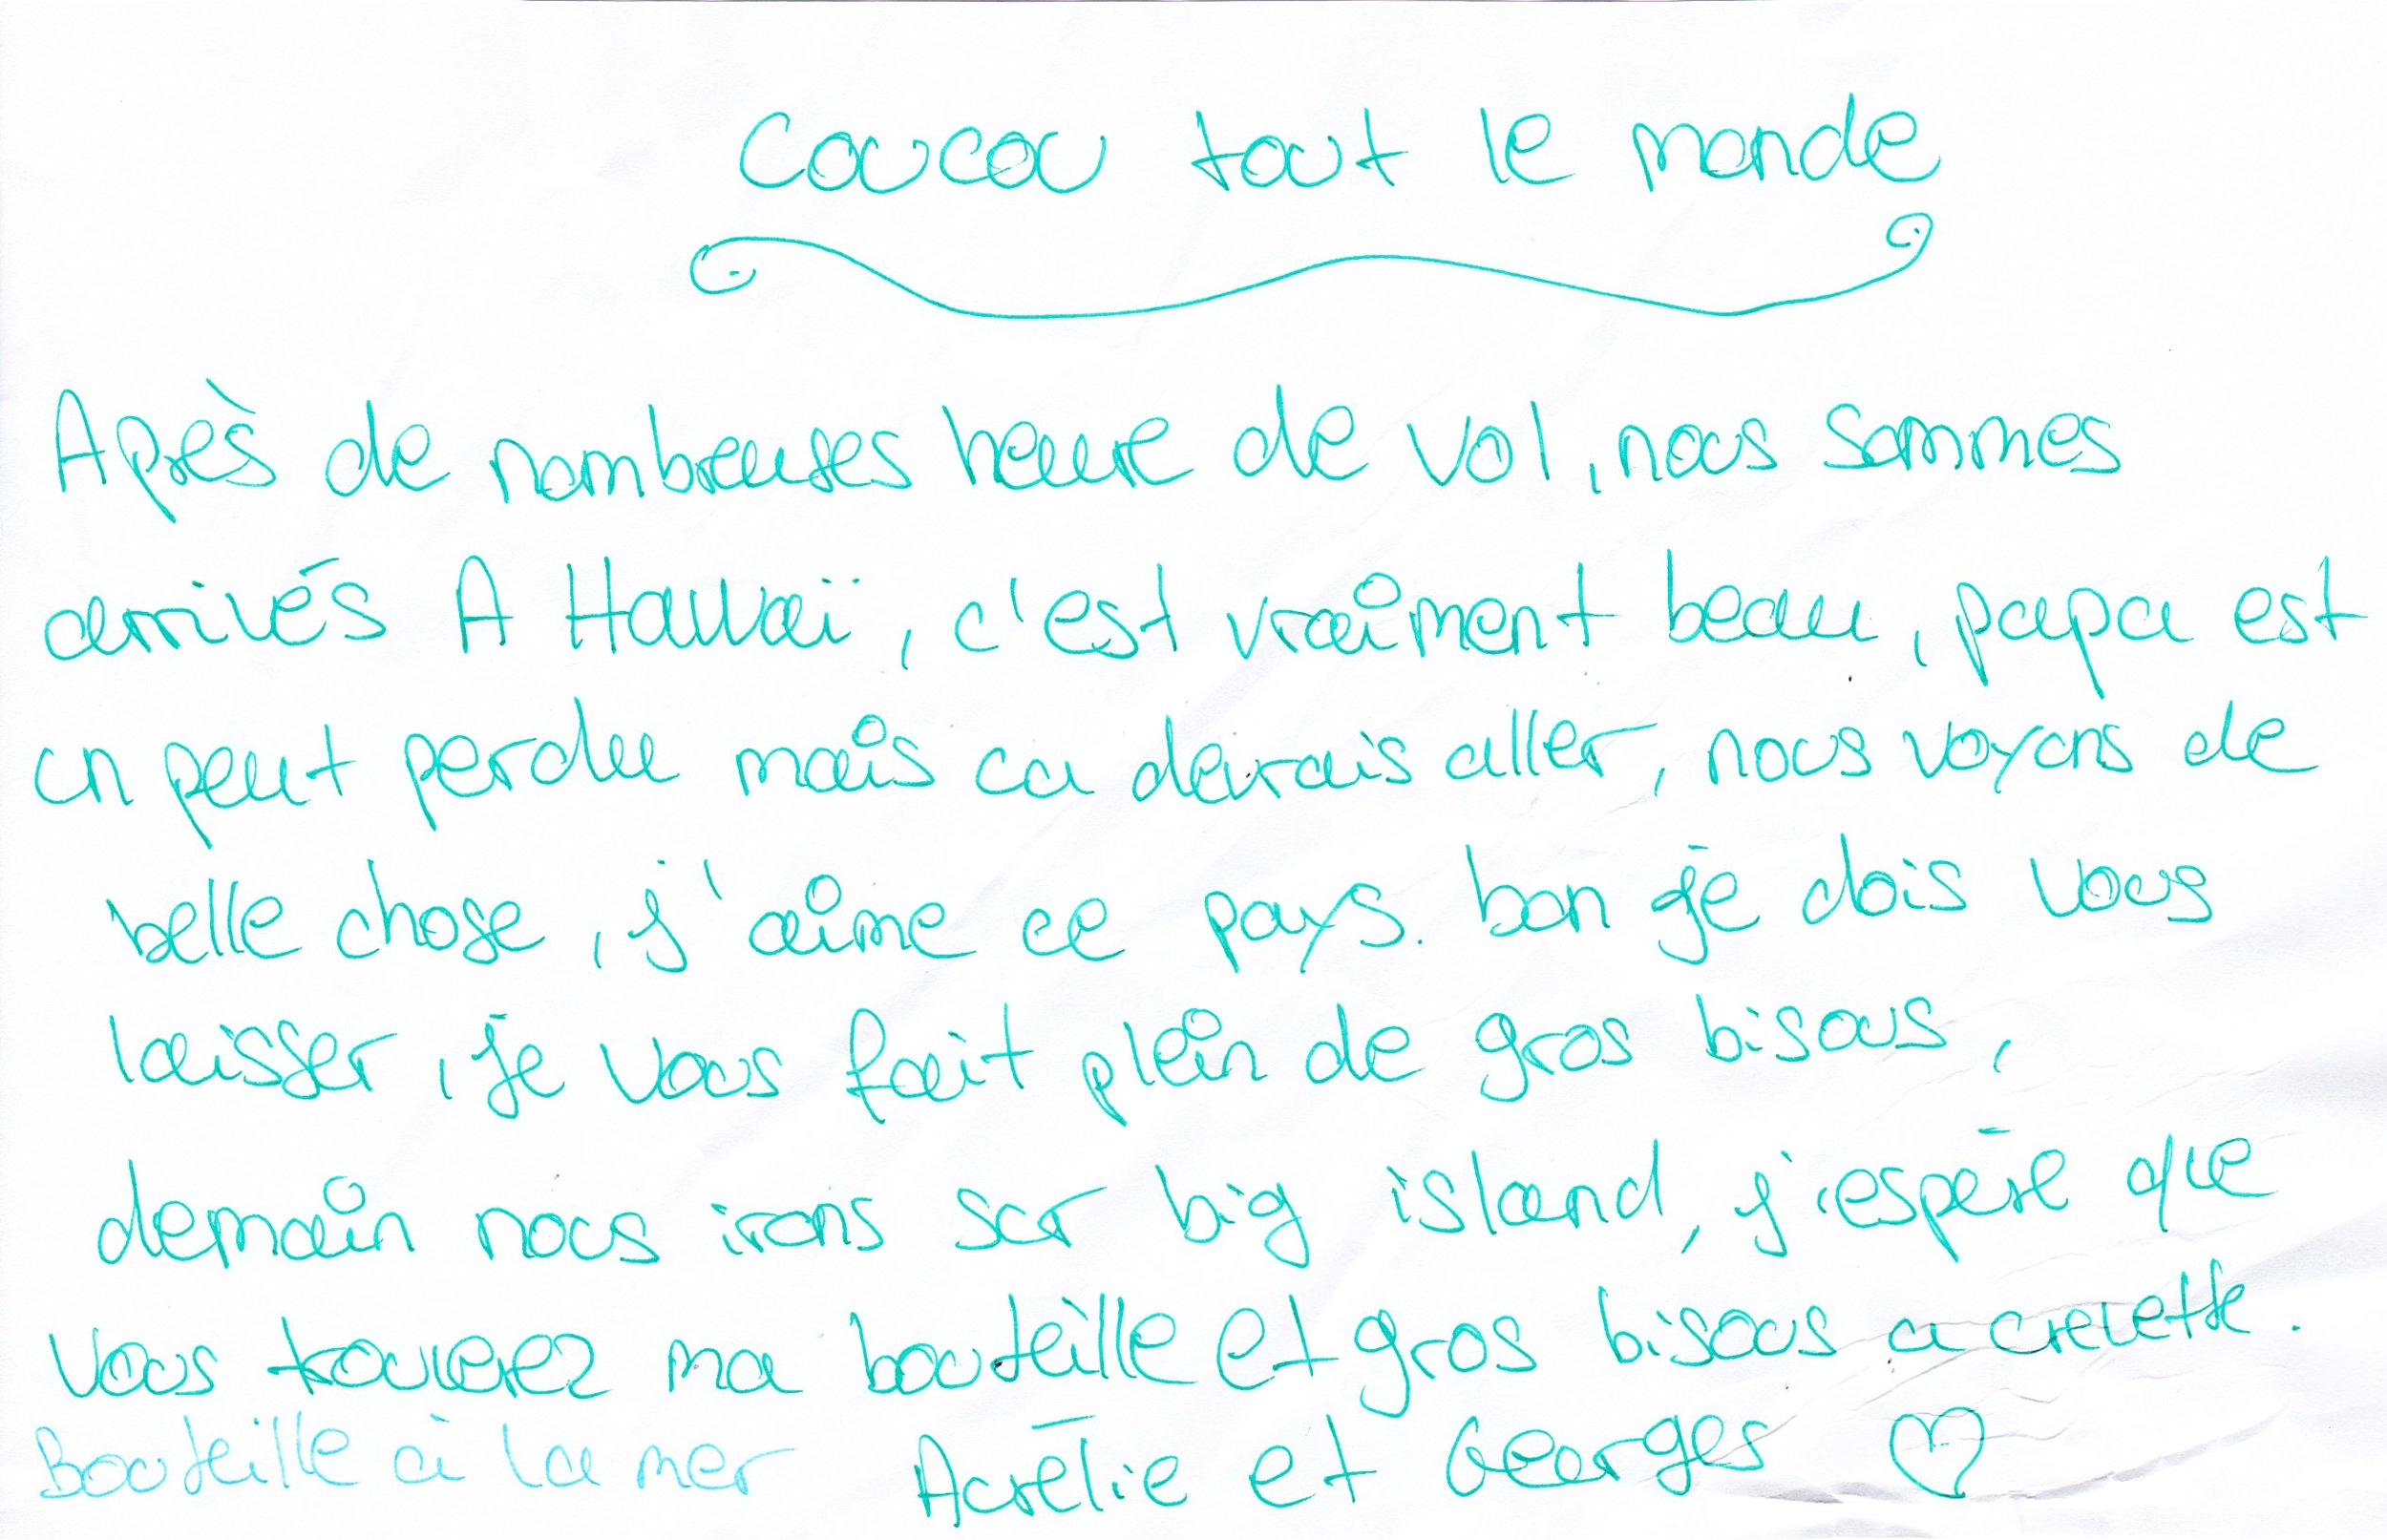 Coucou tout le monde
Après de nombreuses heure de vol, nous sommes
arrivés A Hawaï, c'est vraiment beau, papa est
un peut perdu mais ca devrais aller, nous voyons de
belle chose, j'aime ce pays. bon je dois vous
laisser, je vous fait plein de gros bisous,
demain nous irons sur big island, j'espère que
vous trouverez ma bouteille et gros bisous a crevette.
Bouteille à la mer Aurélie et Georges